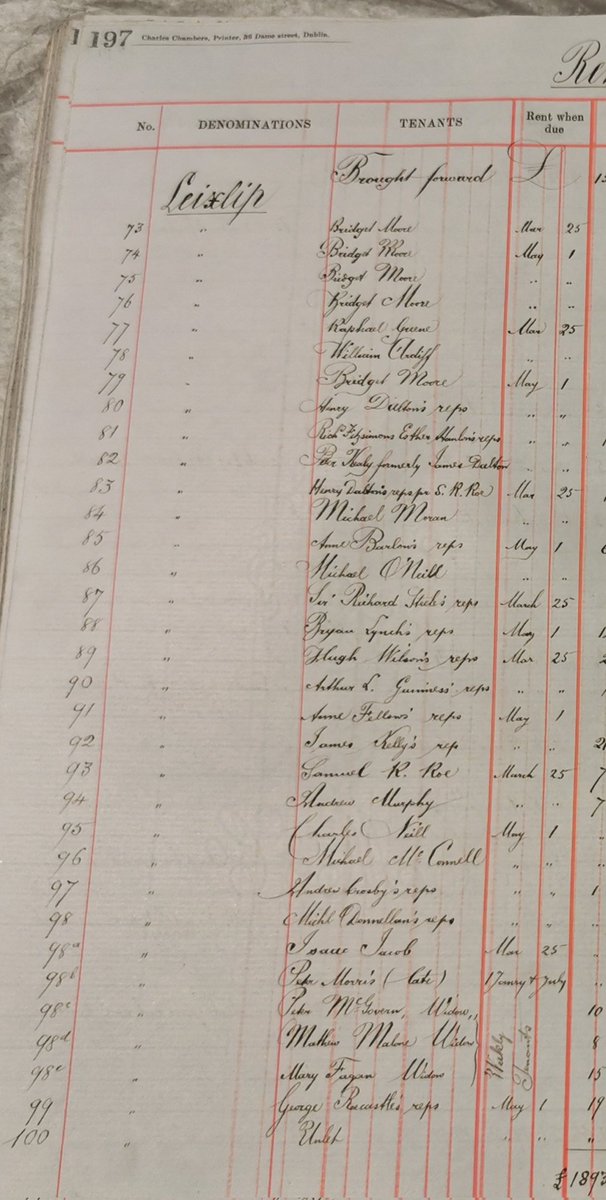 197 Charles Chambers, Printer, 36 Dame street, Dublin.
No. DENOMINATIONS TENANTS Rent when due
Brought forward £
Leixlip
73 " Bridget Moore Mar 25
74 " Bridget Moore May 1
75 " Bridget Moore " "
76 " Bridget Moore " "
77 " Raphael Greene Mar 25
78 " William Ardiff " "
79 " Bridget Moore May 1
80 " Henry Dalton's reps " "
81 " Richd Fitzsimons Esther Hanlon's reps " "
82 " Peter Healy formerly James Dalton " "
83 " Henry Dalton's reps pr S. R. Roe Mar 25
84 " Michael Moran " "
85 " Anne Barlow's reps May 1
86 " Michael O'Neill " "
87 " Sir Richard Steele's reps March 25
88 " Bryan Lynch's reps May 1
89 " Hugh Wilson's reps Mar 25
90 " Arthur L. Guinness' reps " "
91 " Anne Fellows' reps May 1
92 " James Kelly's rep " "
93 " Samuel R. Roe March 25 7
94 " Andrew Murphy " " 7
95 " Charles Neill May 1
96 " Michael McConnell " "
97 " Andrew Crosby's reps " " 1
98 " Michl Donnellan's reps " "
98a " Isaac Jacob Mar 25
98b " Peter Morris (late) 1 Janry & July
98c " Peter McGovern, Widow, 10
98d " Mathew Malone Widow Weekly Tenants 8
98e " Mary Fagan Widow 15
99 " George Racastle's reps May 1 19
100 " Unlet " "
£1893